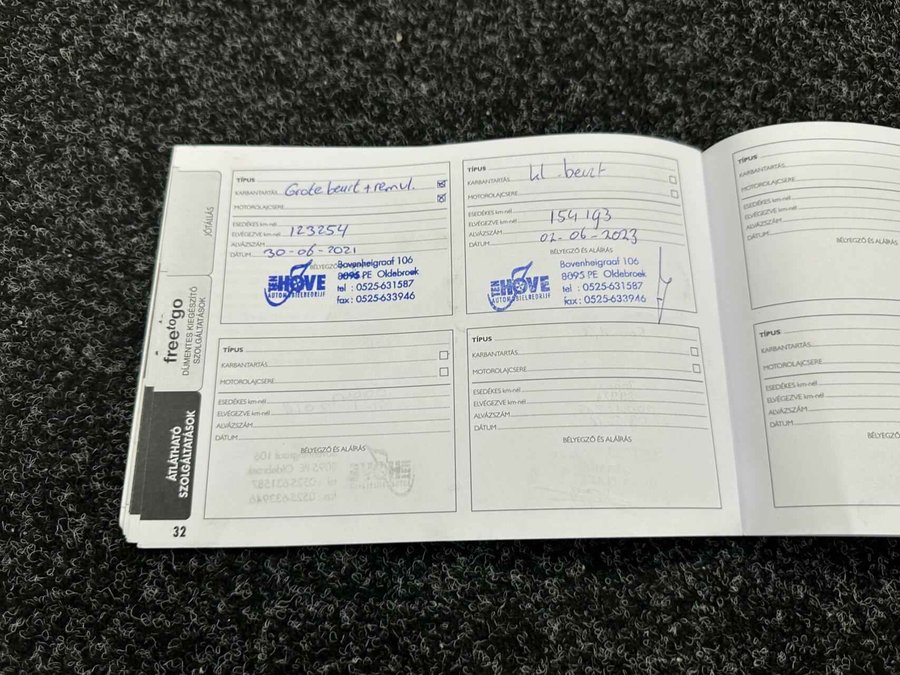 JÓTÁLLÁS
freetogo
DÍJMENTES KIEGÉSZÍTŐ
SZOLGÁLTATÁSOK
ÁTLÁTHATÓ
SZOLGÁLTATÁSOK
32
TÍPUS
KARBANTARTÁS Grote beurt + remvl.
MOTOROLAJCSERE
ESEDÉKES km-nél
ELVÉGEZVE km-nél 123254
ALVÁZSZÁM
DÁTUM 30-06-2021
BÉLYEGZŐ
TEN HOVE
AUTOMOBIELBEDRIJF
Bovenheigraaf 106
8095 PE Oldebroek
tel : 0525-631587
fax : 0525-633946
TÍPUS
KARBANTARTÁS kl. beurt
MOTOROLAJCSERE
ESEDÉKES km-nél
ELVÉGEZVE km-nél 154193
ALVÁZSZÁM
DÁTUM 02-06-2023
BÉLYEGZŐ ÉS ALÁÍRÁS
TEN HOVE
AUTOMOBIELBEDRIJF
Bovenheigraaf 106
8095 PE Oldebroek
tel : 0525-631587
fax : 0525-633946
TÍPUS
KARBANTARTÁS
MOTOROLAJCSERE
ESEDÉKES km-nél
ELVÉGEZVE km-nél
ALVÁZSZÁM
DÁTUM
BÉLYEGZŐ ÉS
TÍPUS
KARBANTARTÁS
MOTOROLAJCSERE
ESEDÉKES km-nél
ELVÉGEZVE km-nél
ALVÁZSZÁM
DÁTUM
BÉLYEGZŐ ÉS ALÁÍRÁS
TÍPUS
KARBANTARTÁS
MOTOROLAJCSERE
ESEDÉKES km-nél
ELVÉGEZVE km-nél
ALVÁZSZÁM
DÁTUM
BÉLYEGZŐ ÉS ALÁÍRÁS
TÍPUS
KARBANTARTÁS
MOTOROLAJCSERE
ESEDÉKES km-nél
ELVÉGEZVE km-nél
ALVÁZSZÁM
DÁTUM
BÉLYEGZŐ